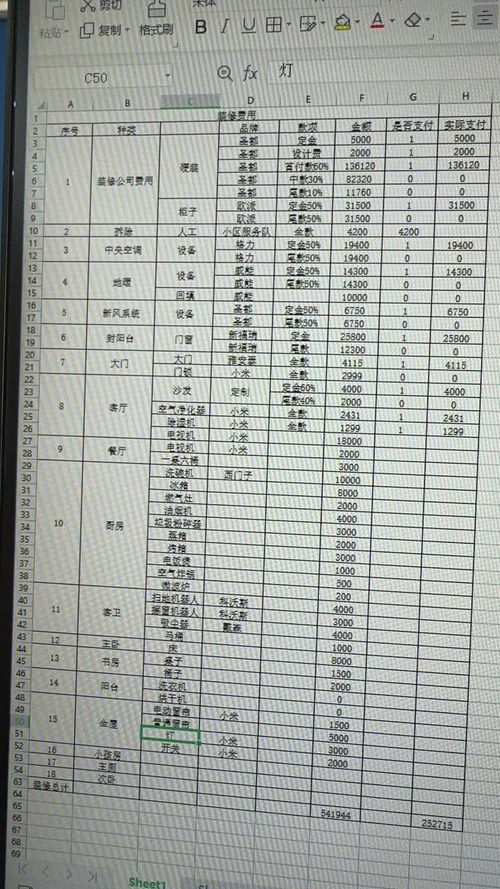 剪切
宋体
粘贴 复制 格式刷 B I U A
C50 fx 灯
A B C D E F G H
1 装修费用
2 序号 种类 品牌 款项 金额 是否支付 实际支付
3 圣都 定金 5000 1 5000
4 圣都 设计费 2000 1 2000
5 硬装 圣都 首付款60% 136120 1 136120
6 1 装修公司费用 圣都 中款30% 82320 0 0
7 圣都 尾款10% 11760 0 0
8 柜子 欧派 定金50% 31500 1 31500
9 欧派 尾款50% 31500 0 0
10 2 拆除 人工 小区服务队 全款 4200 4200
11 3 中央空调 设备 格力 定金50% 19400 1 19400
12 格力 尾款50% 19400 0 0
13 4 地暖 设备 威能 定金50% 14300 1 14300
14 威能 尾款50% 14300 0 0
15 回填 威能 10000 0 0
16 5 新风系统 设备 圣都 定金50% 6750 1 6750
17 圣都 尾款50% 6750 0 0
18 6 封阳台 门窗 新福瑞 定金 25800 1 25800
19 新福瑞 尾款 12300 0 0
20 7 大门 大门 雅安豪 全款 4115 1 4115
21 门锁 小米 全款 2999 0 0
22 8 客厅 沙发 定制 定金60% 4000 1 4000
23 尾款40% 2000 0 0
24 空气净化器 小米 全款 2431 1 2431
25 除湿机 小米 全款 1299 1 1299
26 电视机 小米 18000
27 9 餐厅 电视机 小米 2000
28 一桌六椅 3000
29 10 厨房 洗碗机 西门子 10000
30 冰箱 8000
31 燃气灶 2000
32 油烟机 4000
33 垃圾粉碎器 3000
34 蒸箱 2000
35 烤箱 3000
36 电饭煲 1000
37 空气炸锅 500
38 微波炉 200
39 11 客卫 扫地机器人 科沃斯 4000
40 擦窗机器人 科沃斯 3000
41 吸尘器 戴森 4000
42 马桶 1000
43 12 主卧 床 8000
44 13 书房 桌子 1500
45 椅子 2000
46 14 阳台 洗衣机 0
47 烘干机 0
48 15 全屋 电动窗帘 小米 1500
49 普通窗帘 5000
50 灯 小米 3000
51 开关 小米 2000
52 16 小孩房
53 17 主厕
54 18 次卧
63 装修总计
64
65 541944 252715
66
67
68
69
Sheet1